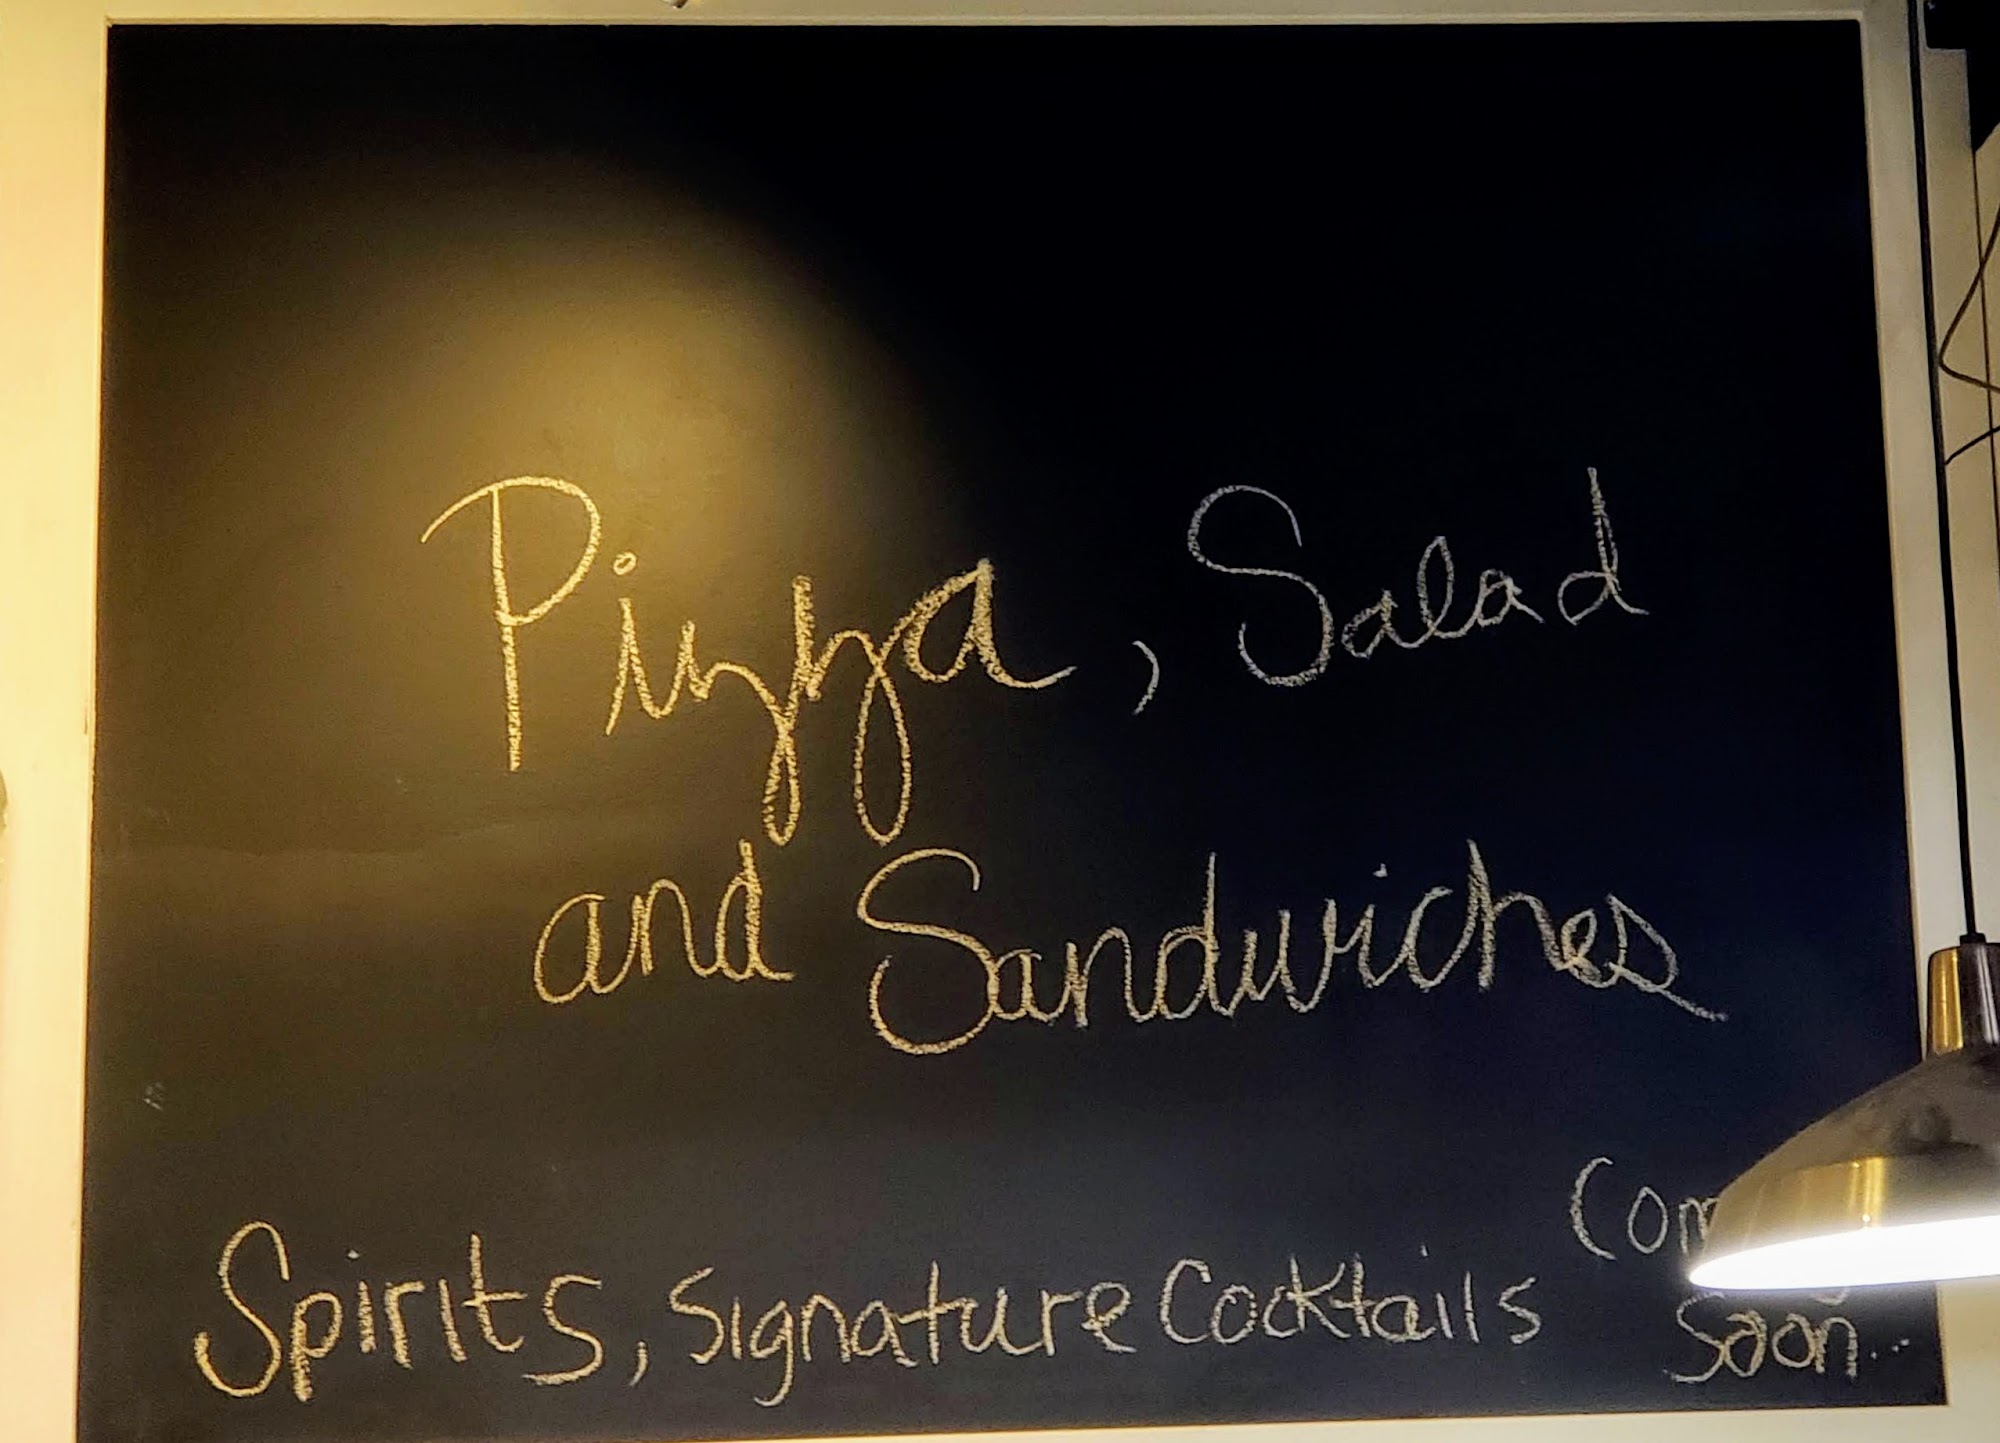 Pizza, Salad
and Sandwiches
Spirits, Signature Cocktails
Soon...